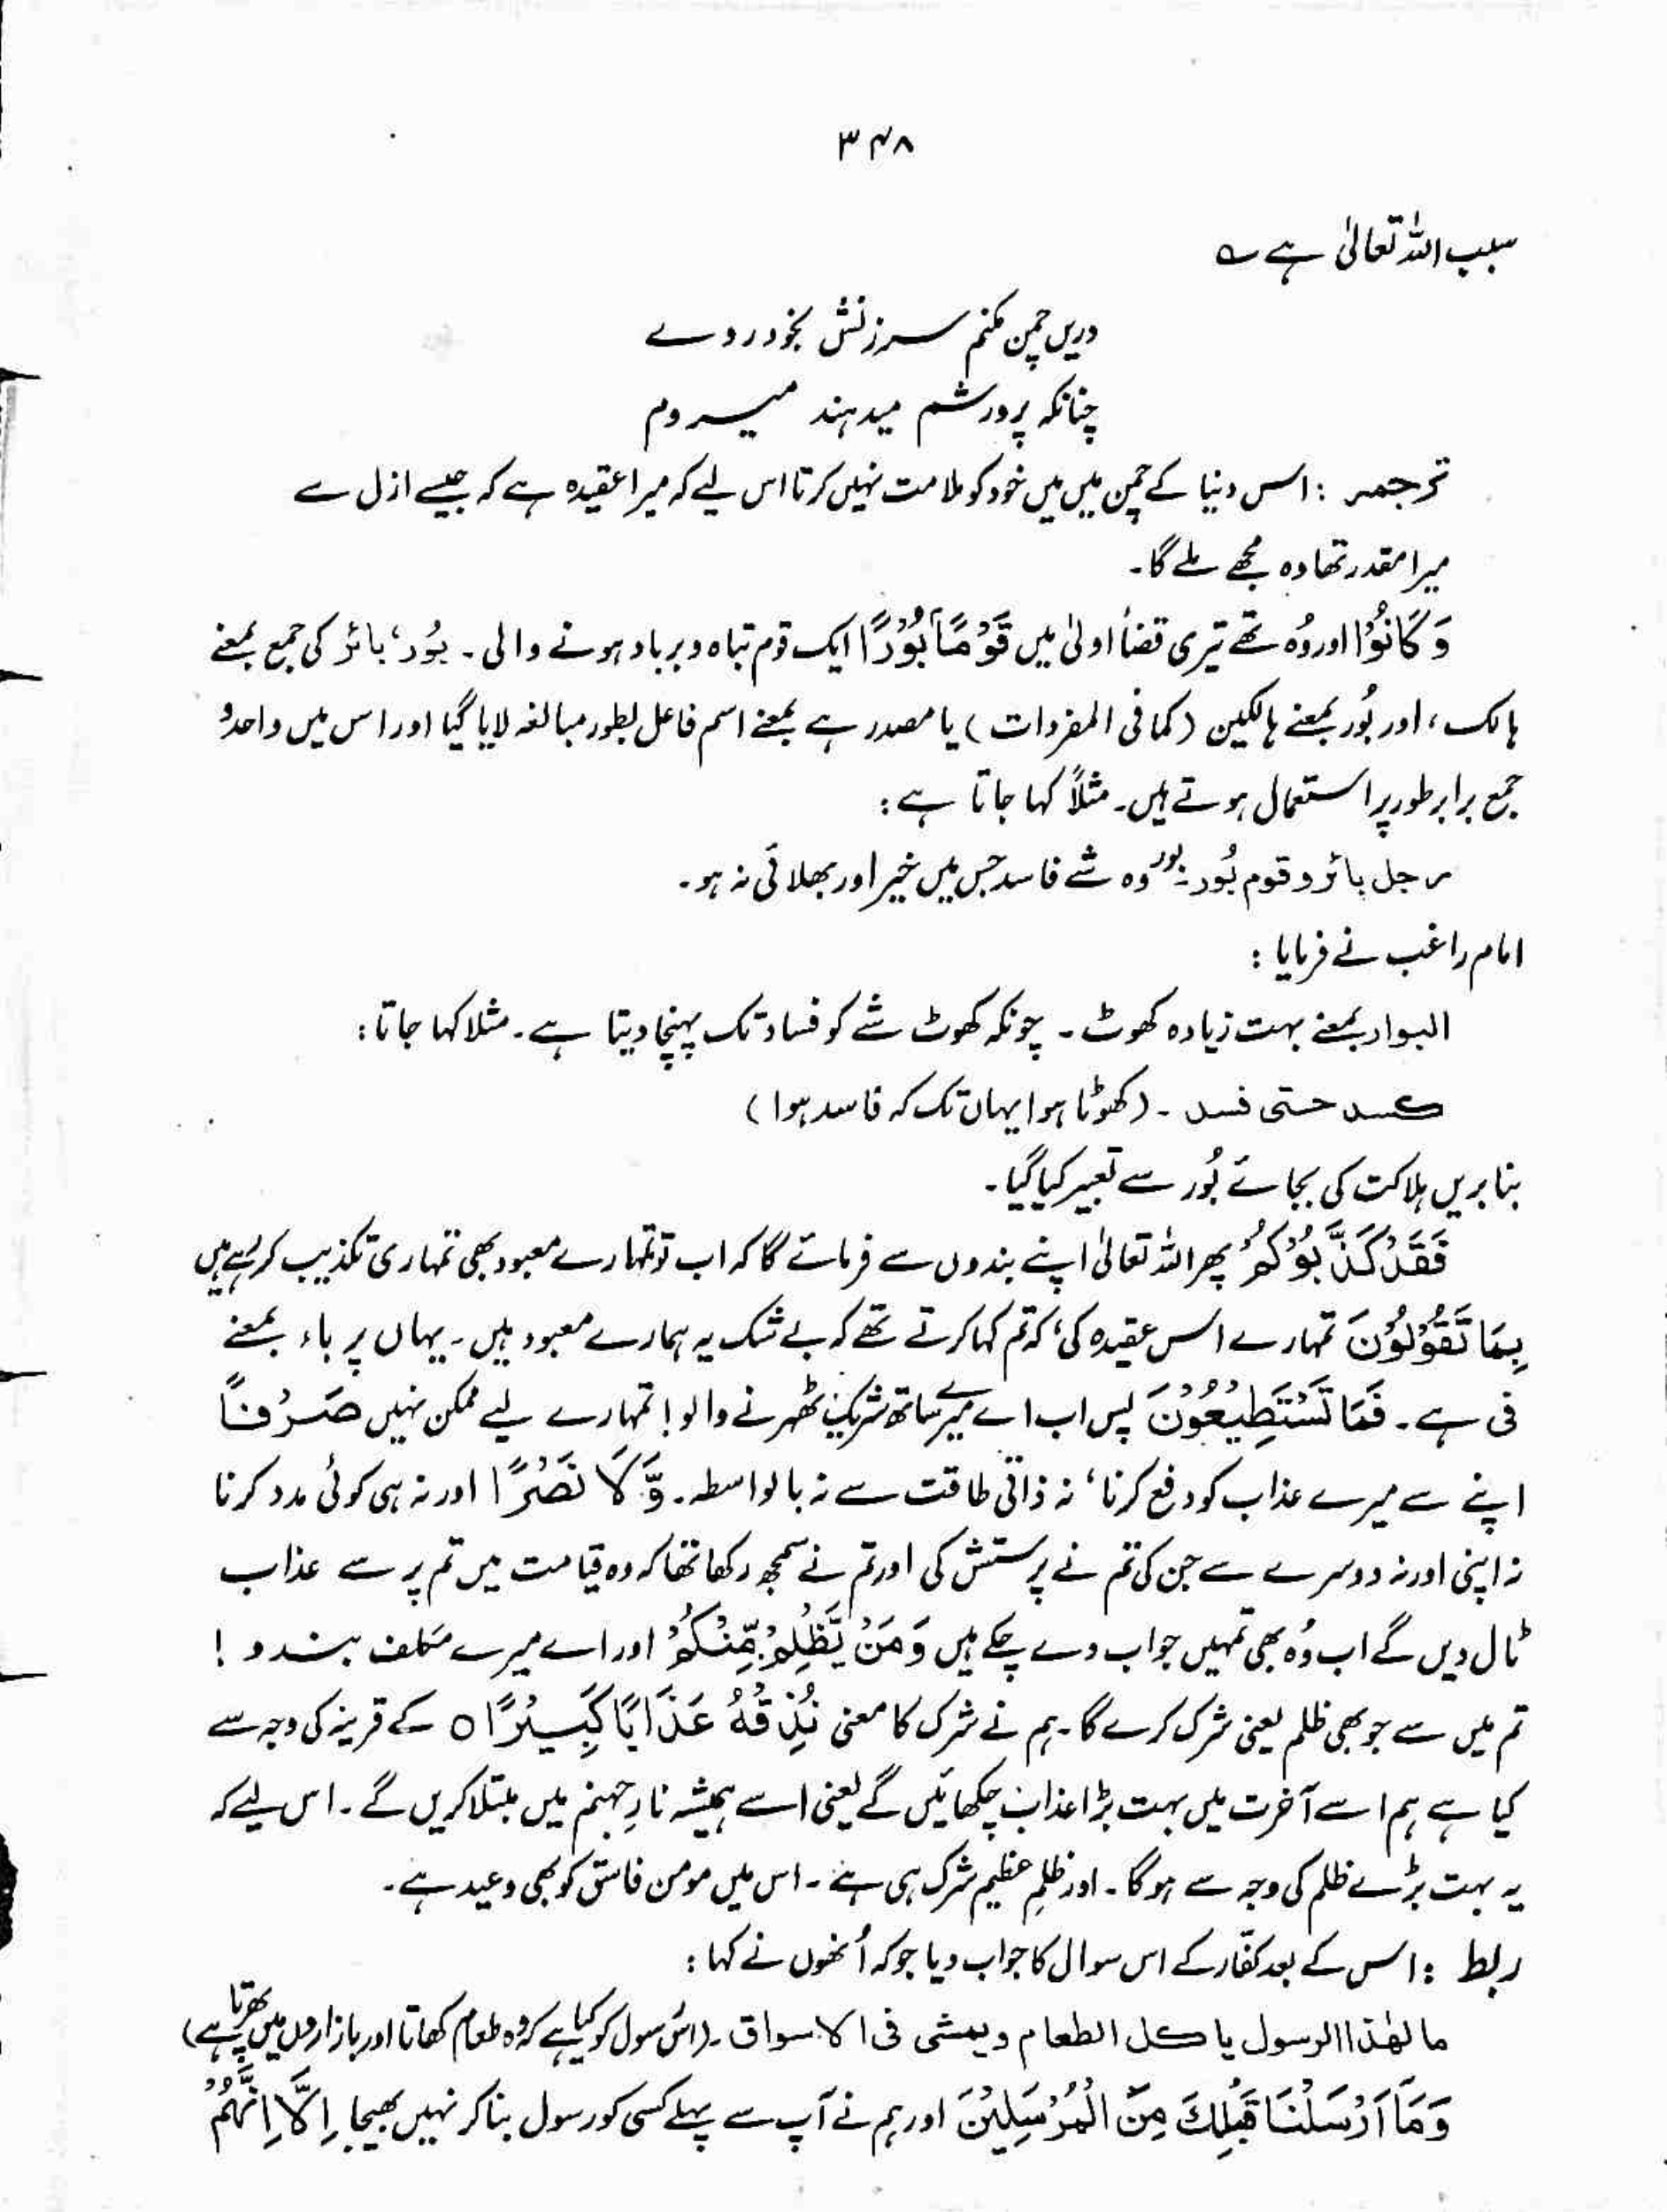 ۳۴۸
سبب اللہ تعالیٰ ہے ؎
دریں چمن مکنم سرزنش بخود روے
چنانکہ پرورشم میدہند میروم
ترجمہ : اس دنیا کے چمن میں میں خود کو ملامت نہیں کرتا اس لیے کہ میرا عقیدہ ہے کہ جیسے ازل سے
میرا مقدر تھا وہ مجھے ملے گا۔
وَ كَانُوْا اور وُہ تھے تیری قضأ اولیٰ میں قَوْمًۢا بُوْرًا ایک قوم تباہ و برباد ہونے والی ۔ بُور، بائر کی جمع بمعنے
ہالک ، اور بُور بمعنے ہالکین (کما فی المفردات) یا مصدر ہے بمعنے اسم فاعل بطور مبالغہ لایا گیا اور اس میں واحد و
جمع برابر طور پر استعمال ہوتے ہیں۔ مثلاً کہا جاتا ہے :
رجل بائر و قوم بُور ۔ بور وہ شے فاسد جس میں خیر اور بھلائی نہ ہو ۔
امام راغب نے فرمایا :
البوار بمعنے بہت زیادہ کھوٹ ۔ چونکہ کھوٹ شے کو فساد تک پہنچا دیتا ہے ۔ مثلا کہا جاتا :
کسد حتی فسد ۔ (کھوٹا ہوا یہاں تک کہ فاسد ہوا )
بنا بریں ہلاکت کی بجائے بُور سے تعبیر کیا گیا ۔
فَقَدْ كَذَّبُوْكُمْ پھر اللہ تعالیٰ اپنے بندوں سے فرمائے گا کہ اب تو تمہارے معبود بھی تمہاری تکذیب کر رہے ہیں
بِمَا تَقُوْلُوْنَ تمہارے اس عقیدہ کی، کہ تم کہا کرتے تھے کہ بے شک یہ ہمارے معبود ہیں ۔ یہاں پر باء بمعنے
فی ہے ۔ فَمَا تَسْتَطِيْعُوْنَ پس اب اے میرے ساتھ شریک ٹھہرنے والو! تمہارے لیے ممکن نہیں صَرْفًا
اپنے سے میرے عذاب کو دفع کرنا، نہ ذاتی طاقت سے نہ بالواسطہ ۔ وَّ لَا نَصْرًا اور نہ ہی کوئی مدد کرنا
نہ اپنی اور نہ دوسرے سے جن کی تم نے پرستش کی اور تم نے سمجھ رکھا تھا کہ وہ قیامت میں تم پر سے عذاب
ٹال دیں گے اب وُہ بھی تمہیں جواب دے چکے ہیں وَ مَنْ يَّظْلِمْ مِّنْكُمْ اور اے میرے مکلف بندو !
تم میں سے جو بھی ظلم یعنی شرک کرے گا ۔ ہم نے شرک کا معنی نُذِقْهُ عَذَابًا كَبِيْرًا ○ کے قرینہ کی وجہ سے
کیا ہے ہم اسے آخرت میں بہت بڑا عذاب چکھائیں گے یعنی اسے ہمیشہ نارِ جہنم میں مبتلا کریں گے ۔ اس لیے کہ
یہ بہت بڑے ظلم کی وجہ سے ہوگا ۔ اور ظلمِ عظیم شرک ہی ہے ۔ اس میں مومن فاسق کو بھی وعید ہے ۔
ربط : اس کے بعد کفّار کے اس سوال کا جواب دیا جو کہ اُنھوں نے کہا :
ما لھٰذا الرسول یا کل الطعام و یمشی فی الاسواق ۔ (اس رسول کو کیا ہے کہ وہ طعام کھاتا اور بازاروں میں پھرتا ہے)
وَ مَاۤ اَرْسَلْنَا قَبْلَكَ مِنَ الْمُرْسَلِيْنَ اور ہم نے آپ سے پہلے کسی کو رسول بنا کر نہیں بھیجا اِلَّاۤ اِنَّهُمْ